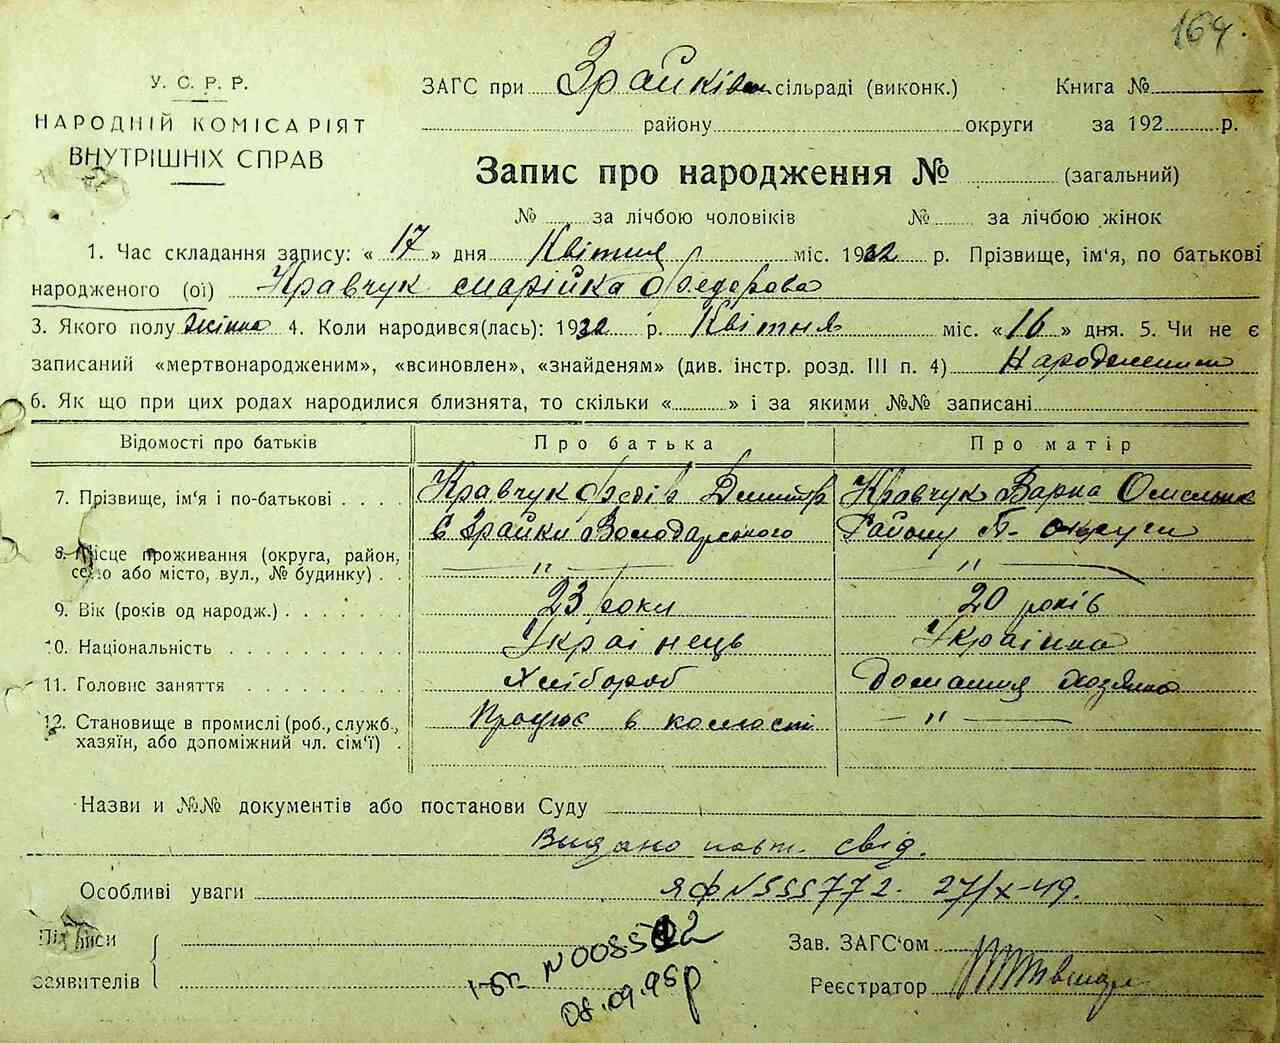 164.
У. С. Р. Р.
НАРОДНІЙ КОМІСАРІЯТ
ВНУТРІШНІХ СПРАВ
ЗАГС при Зрайків сільраді (виконк.) Книга №
району округи за 192 р.
Запис про народження № (загальний)
№ за лічбою чоловіків № за лічбою жінок
1. Час складання запису: « 17 » дня Квітня міс. 1932 р. Прізвище, ім'я, по батькові
народженого (ої) Кравчук Марійка Федорова
3. Якого полу жінка 4. Коли народився(лась): 1932 р. Квітня міс. « 16 » дня. 5. Чи не є
записаний «мертвонародженим», «всиновлен», «знайденям» (див. інстр. розд. III п. 4) Народженим
6. Як що при цих родах народилися близнята, то скільки « » і за якими №№ записані
Відомості про батьків Про батька Про матір
7. Прізвище, ім'я і по-батькові Кравчук Федір Дмитр Кравчук Варка
с Зрайки Володарського Району Б- округи
8. Місце проживання (округа, район,
село або місто, вул., № будинку) " "
9. Вік (років од народж.) 23 роки 20 років
10. Національність Українець Українка
11. Головне заняття Хлібороб Домашня
12. Становище в промислі (роб., служб., Працює в колгоспі "
хазяїн, або допоміжний чл. сім'ї)
Назви и №№ документів або постанови Суду
Видано повт. свід.
Особливі уваги ЯФ N 555772. 27/X-49.
Підписи
заявителів
N 008502
08.09.95р
Зав. ЗАГС'ом
Реєстратор